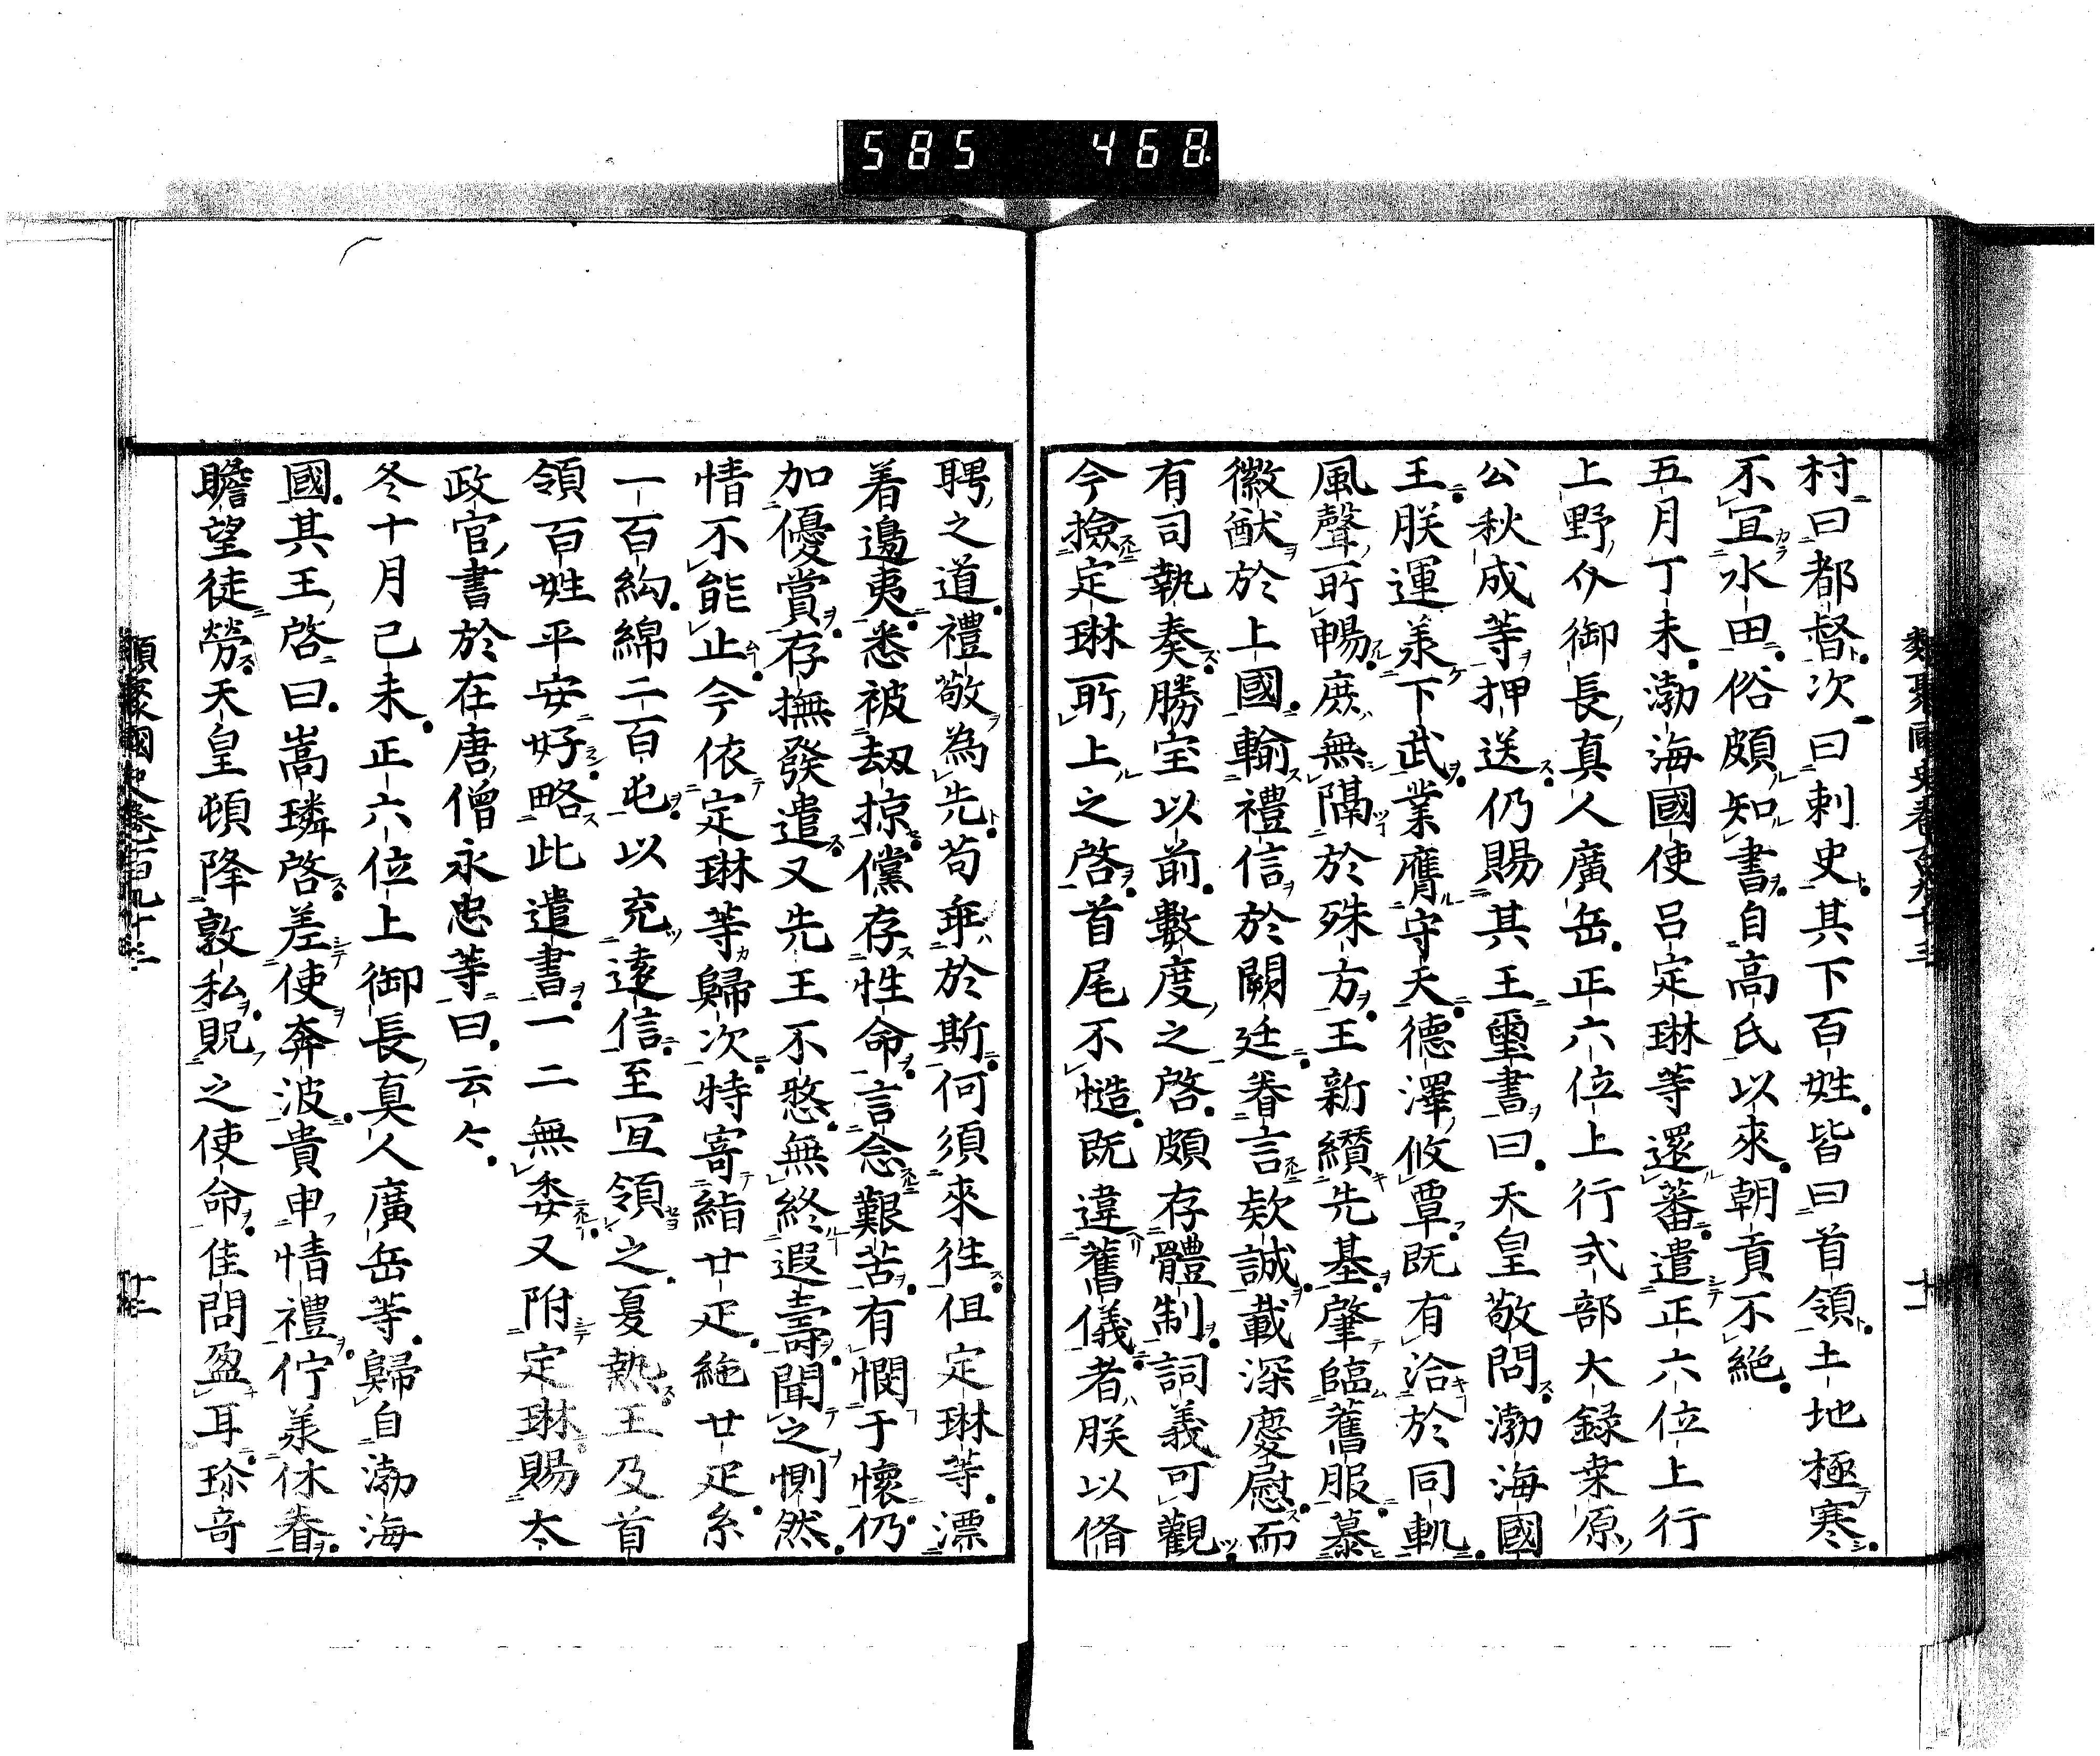 585 468
類聚國史卷百九十三 十一
村曰都督次曰刺史其下百姓皆曰首領土地極寒
不宜水田俗頗知書自高氏以來朝貢不絕
五月丁未渤海國使呂定琳等還蕃遣正六位上行
上野介御長真人廣岳正六位上行式部大録桒原
公秋成等押送仍賜其王璽書曰天皇敬問渤海國
王朕運羕下武業膺守天德澤攸覃既有洽於同軌
風聲所暢庶無隔於殊方王新纘先基肇臨舊服慕
徽猷於上國輸禮信於闕廷眷言欵誠載深慶慰而
有司執奏勝宝以前數度之啓頗存體制詞義可觀
今撿定琳所上之啓首尾不慥既違舊儀者朕以脩
聘之道禮敬為先苟乖於斯何須來徃但定琳等漂
着邊夷悉被刼掠僅存性命言念艱苦有憫于懷仍
加優賞存撫發遣又先王不愍無終遐壽聞之惻然
情不能止今依定琳等歸次特寄絁廿疋絁廿疋糸
一百絇綿二百屯以充遠信至宜領之夏熱王及首
領百姓平安好略此遣書一二無委又附定琳賜太
政官書於在唐僧永忠等曰云々
冬十月己未正六位上御長真人廣岳等歸自渤海
國其王啓曰嵩璘啓差使奔波貴申情禮佇羕休眷
瞻望徒勞天皇頓降敦私貺之使命佳問盈耳珎奇
類聚國史卷百九十三 十二